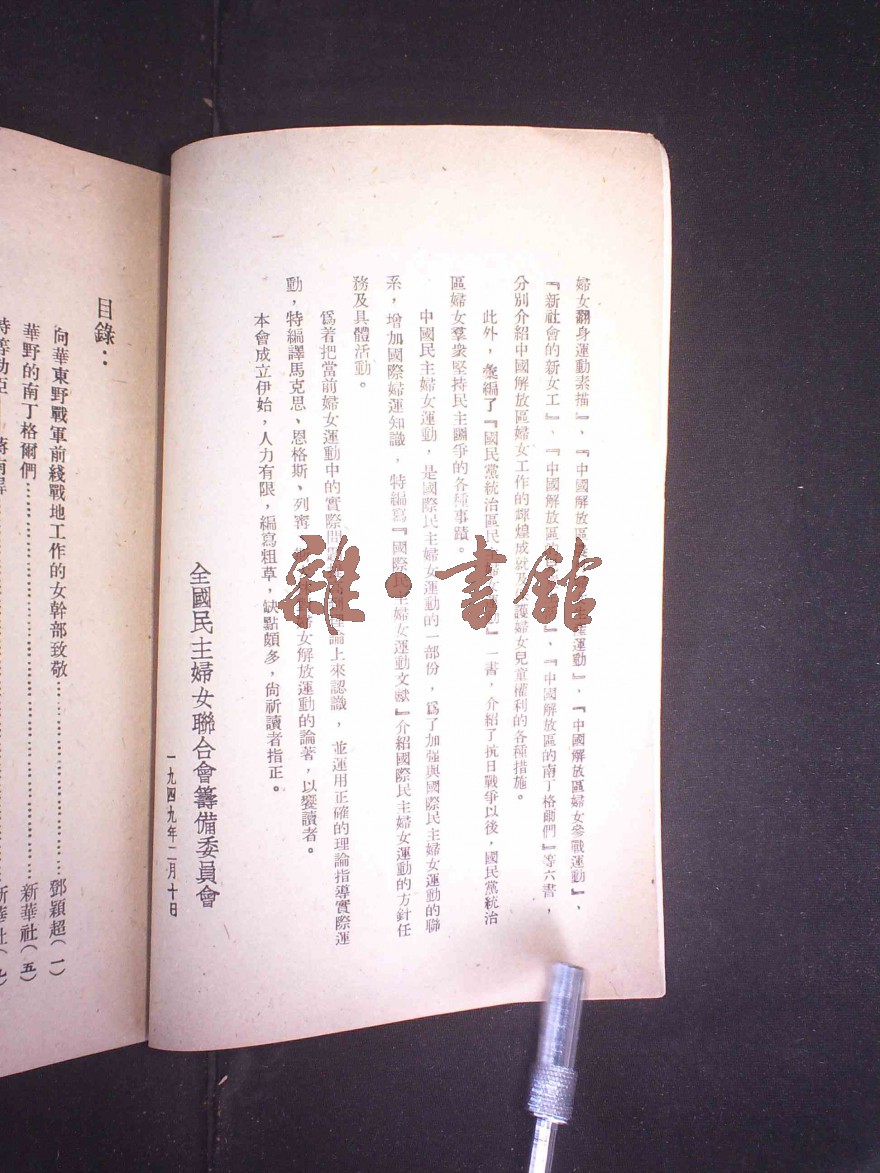 婦女翻身運動素描』、『中國解放區 產運動』、『中國解放區婦女參戰運動』、
『新社會的新女工』、『中國解放區的 』、『中國解放區的南丁格爾們』等六書，
分別介紹中國解放區婦女工作的輝煌成就及 護婦女兒童權利的各種措施。
此外，彙編了『國民黨統治區民 動』一書，介紹了抗日戰爭以後，國民黨統治
區婦女羣衆堅持民主鬬爭的各種事蹟。
中國民主婦女運動，是國際民主婦女運動的一部份，爲了加強與國際民主婦女運動的聯
系，增加國際婦運知識，特編寫『國際民主婦女運動文獻』介紹國際民主婦女運動的方針任
務及具體活動。
爲着把當前婦女運動中的實際問題 理論上來認識，並運用正確的理論指導實際運
動，特編譯馬克思、恩格斯、列寗 女解放運動的論著，以饗讀者。
本會成立伊始，人力有限，編寫粗草，缺點頗多，尙祈讀者指正。
全國民主婦女聯合會籌備委員會
一九四九年二月十日
目錄：
向華東野戰軍前綫戰地工作的女幹部致敬……鄧穎超(一)
華野的南丁格爾們……新華社(五)
雜·書館